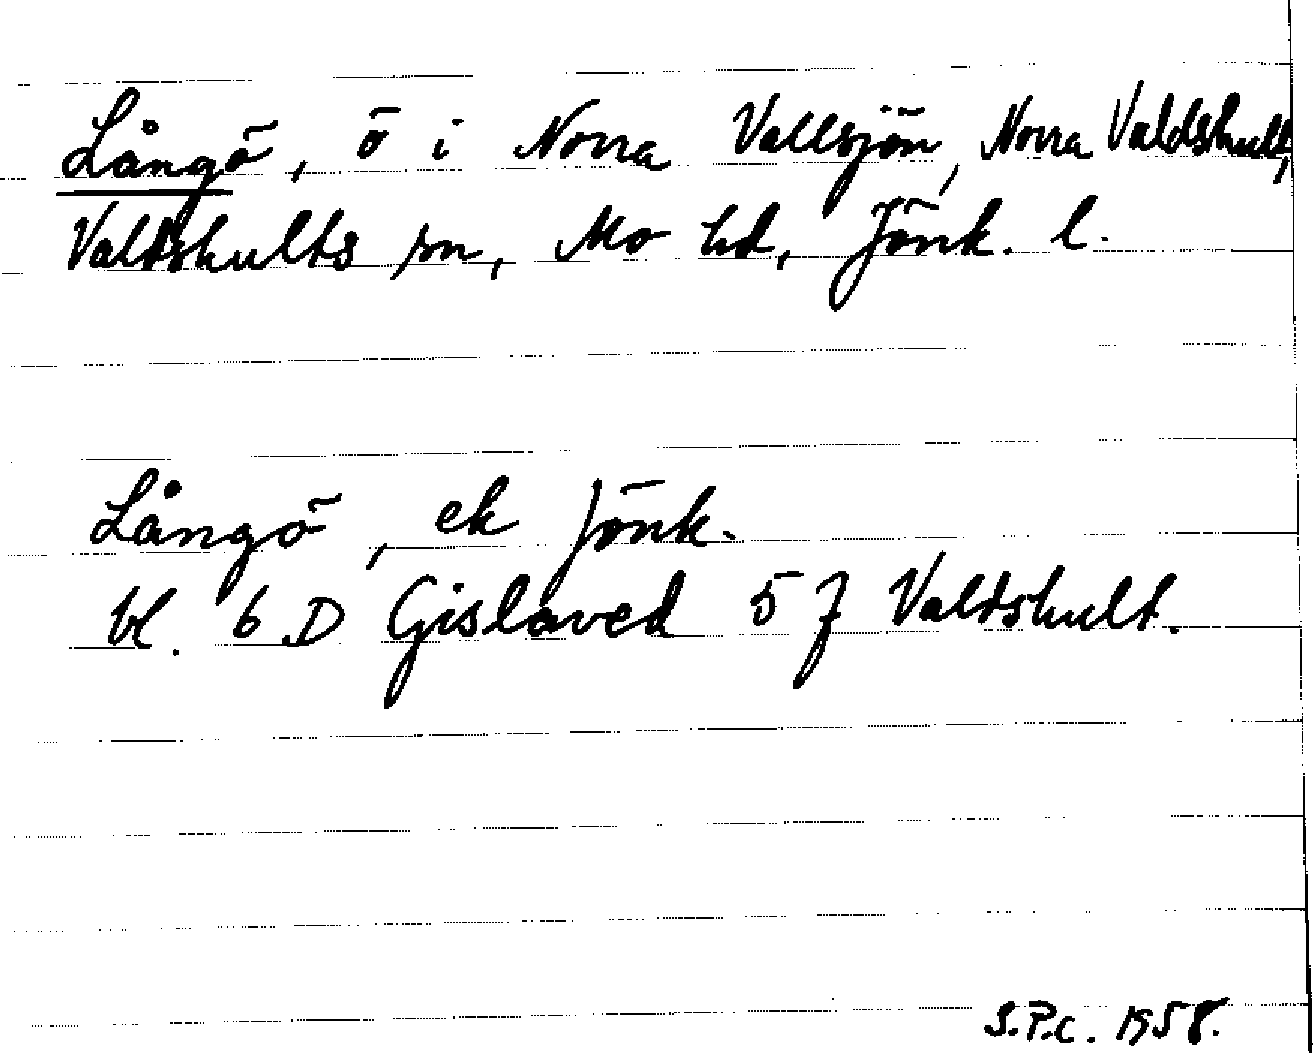 Långö, ö i Norra Vallsjön, Norra Valdshult,
Valdshults sn, Mo hd, Jönk. l.
Långö, ek Jönk.
bl. 6 D Gislaved 5 f Valdshult.
S.P.C. 1958.